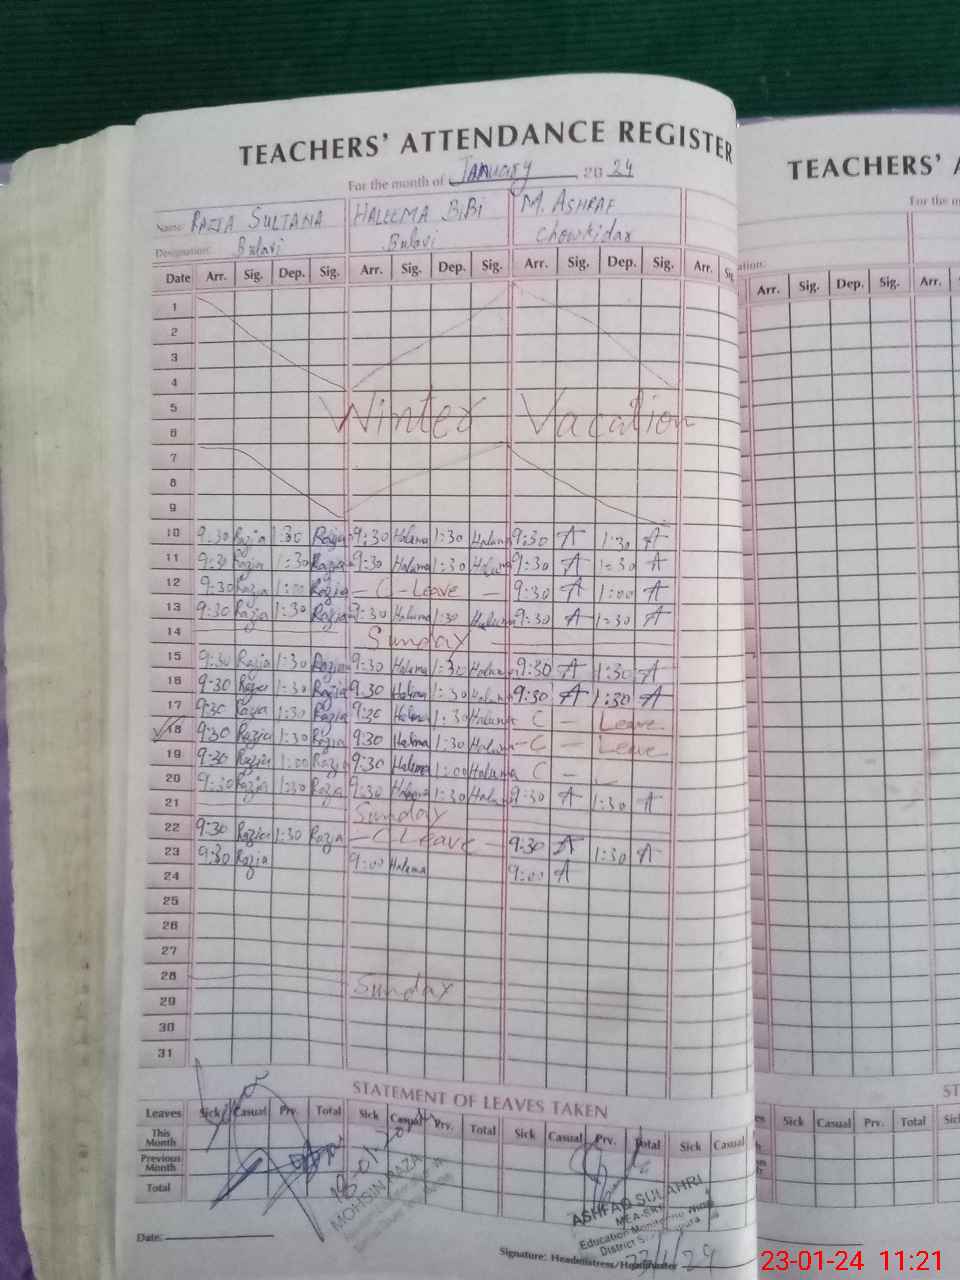 TEACHERS' ATTENDANCE REGISTER
TEACHERS' A
For the month of January 2024
For the m
Name: RAZIA SULTANA HALEEMA BIBI M. ASHRAF
Designation: Chowkidar
ation:
Date Arr. Sig. Dep. Sig. Arr. Sig. Dep. Sig. Arr. Sig. Dep. Sig. Arr. Sig.
Arr. Sig. Dep. Sig. Arr.
1
2
3
4
5
Winter Vacation
6
7
8
9
10 9:30 Razia 1:30 Razia 9:30 Halema 1:30 Halema 9:30 A 1:30 A
11 9:30 Razia 1:30 Razia 9:30 Halema 1:30 Halema 9:30 A 1:30 A
12 9:30 Razia 1:00 Razia - C - Leave - 9:30 A 1:00 A
13 9:30 Razia 1:30 Razia 9:30 Halema 1:30 Halema 9:30 A 1:30 A
14 Sunday
15 9:30 Razia 1:30 Razia 9:30 Halema 1:30 Halema 9:30 A 1:30 A
16 9:30 Razia 1:30 Razia 9:30 Halema 1:30 Halema 9:30 A 1:30 A
17 9:30 Razia 1:30 Razia 9:30 Halema 1:30 Halema C - Leave
18 9:30 Razia 1:30 Razia 9:30 Halema 1:30 Halema - C - Leave
19 9:30 Razia 1:00 Razia 9:30 Halema 1:00 Halema C - L
20 9:30 Razia 1:30 Razia 9:30 Halema 1:30 Halema 9:30 A 1:30 A
21 Sunday
22 9:30 Razia 1:30 Razia - C Leave - 9:30 A 1:30 A
23 9:30 Razia 9:00 Halema 9:00 A
24
25
26
27
28 Sunday
29
30
31
STATEMENT OF LEAVES TAKEN
ST
Leaves Sick Casual Prv. Total Sick Casual Prv. Total Sick Casual Prv. Total Sick Casual
Sick Casual Prv. Total Sick
This Month
Previous Month
Total
18-01-
MOHSIN RAZA
ASHFAQ SULAHRI
MEA-
Education Monitoring
District
Date:
Signature: Headmistress/Headmaster
23/1/24
23-01-24 11:21